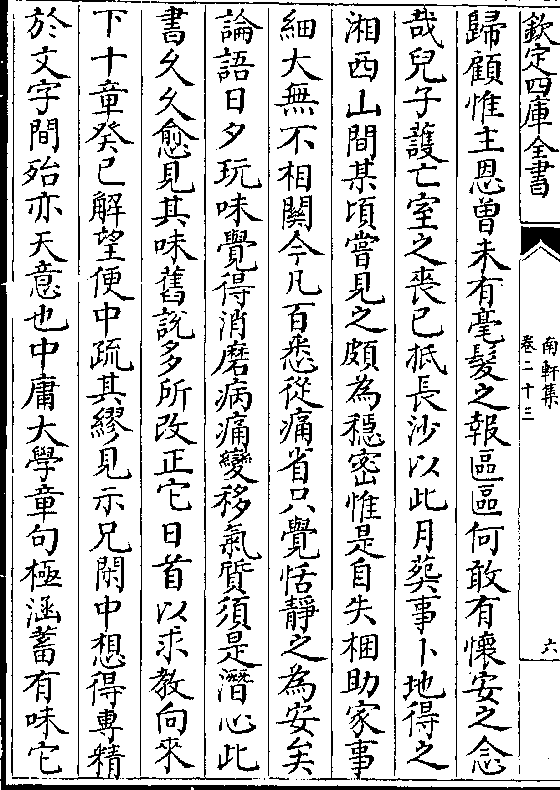 欽定四庫全書
南軒集
卷二十三
六
歸顧惟主恩曽未有毫髮之報區區何敢有懷安之念
哉兒子護亡室之喪已抵長沙以此月葬事卜地得之
湘西山間某頃嘗見之頗為穩密惟是自失梱助家事
細大無不相關今凡百悉從痛省只覺恬靜之為安矣
論語日夕玩味覺得消磨病痛變移氣質須是潛心此
書久久愈見其味舊說多所改正它日首以求教向來
下十章癸已解望便中疏其繆見示兄閑中想得專精
於文字間殆亦天意也中庸大學章句極涵蓄有味它